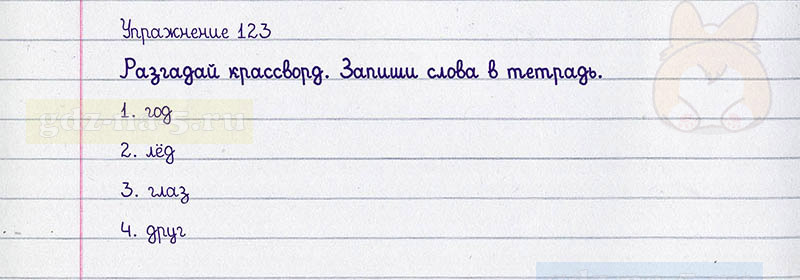 Упражнение 123
Разгадай крассворд. Запиши слова в тетрадь.
1. год
gdz-na-5.ru
2. лёд
3. глаз
4. друг